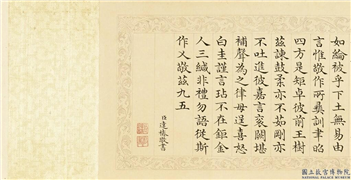 如綸被乎下土無易由
言惟敬作所彞訓聿昭
四方是矩卓彼前王樹
茲諫鼓柔亦不茹剛亦
不吐進彼嘉言袞闕堪
補聲為之律毋逞喜怒
白圭謹言玷不在鉅金
人三緘非禮勿語徙斯
作乂敬茲九五
臣達椿敬書
國立故宮博物院
NATIONAL PALACE MUSEUM